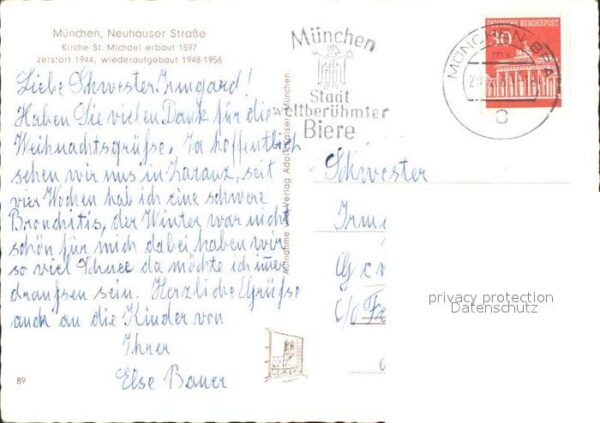 München, Neuhauser Straße
Kirche St. Michael erbaut 1597
zerstört 1944, wiederaufgebaut 1948-1956
Liebe Schwester Irmgard!
Haben Sie vielen Dank für die
Weihnachtsgrüße. Ja hoffentlich
sehen wir uns in seit
vier Wochen hab ich eine schwere
Bronchitis, der Winter war nicht
schön für mich dabei haben wir
so viel Schnee da möchte ich immer
draußen sein. Herzliche Grüße
auch an die Kinder von
Ihrer
Else Bauer
89
Aufnahme und Verlag Adolf Kaiser, München
München
Stadt
weltberühmter
Biere
30
DEUTSCHE BUNDESPOST
MÜNCHEN BPA
Schwester
Irm
c/o
privacy protection
Datenschutz